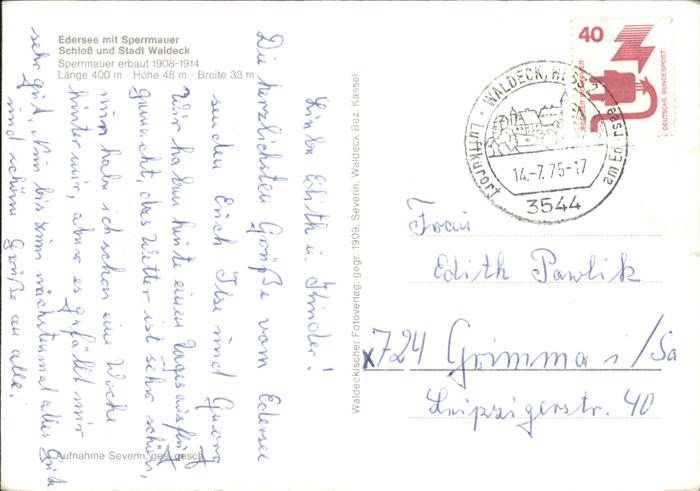 Edersee mit Sperrmauer
Schloß und Stadt Waldeck
Sperrmauer erbaut 1908-1914
Länge 400 m · Höhe 48 m · Breite 33 m
Liebe Edith u. Kinder!
Die herzlichsten Grüße vom Edersee
senden Euch Ilse und Georg
Wir haben heute einen Tagesausflug
gemacht, das Wetter ist sehr schön,
nun habe ich schon eine Woche
hinter mir, aber es gefällt mir
sehr gut. Nun bis zum nächstenmal alles Gute
und schöne Grüße an alle!
Aufnahme Severin, ges. gesch.
Waldeckischer Fotoverlag, gegr. 1909, Severin, Waldeck Bez. Kassel
WALDECK, HESS 1
Luftkurort
am Edersee
14.-7.75-17
3544
40
DEUTSCHE BUNDESPOST
Frau
Edith Pawlik
x724 Grimma i/Sa
Leipzigerstr. 40